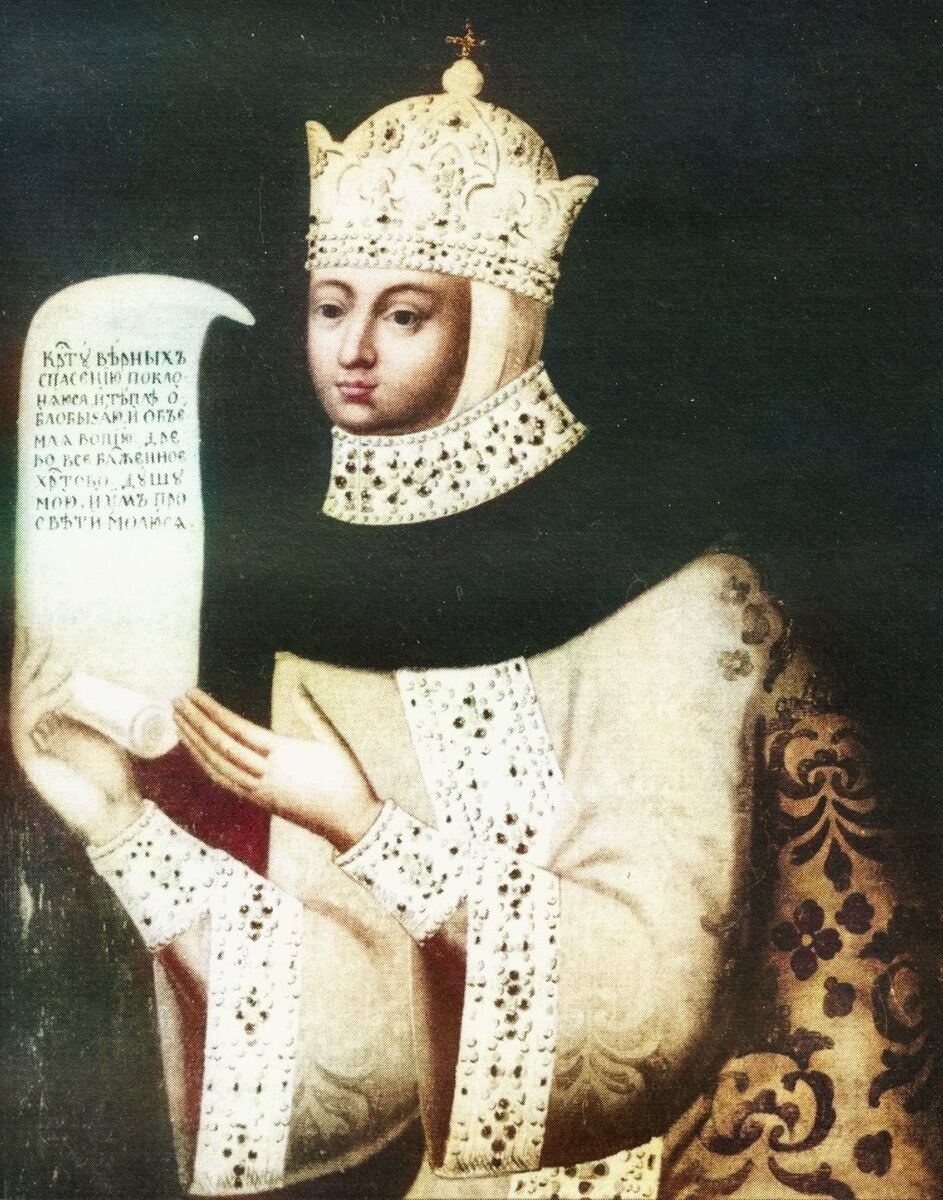 КРТ҃У ВѢРНЫХЪ
СПАСЕНІЮ ПОКЛО-
НАЮСЯ, И ТѢПЛѢ О҆
БЛОБЫЗАЮ, И ОБЪЕ
МЛА ВОПІЮ, ДРЕ
ВО ВСЕ БЛ҃ЖЕННОЕ
ХР҃ТОВО, ДУШУ
МОЮ, И УМЪ ПРО
СВѢТИ МОЛЮСА.